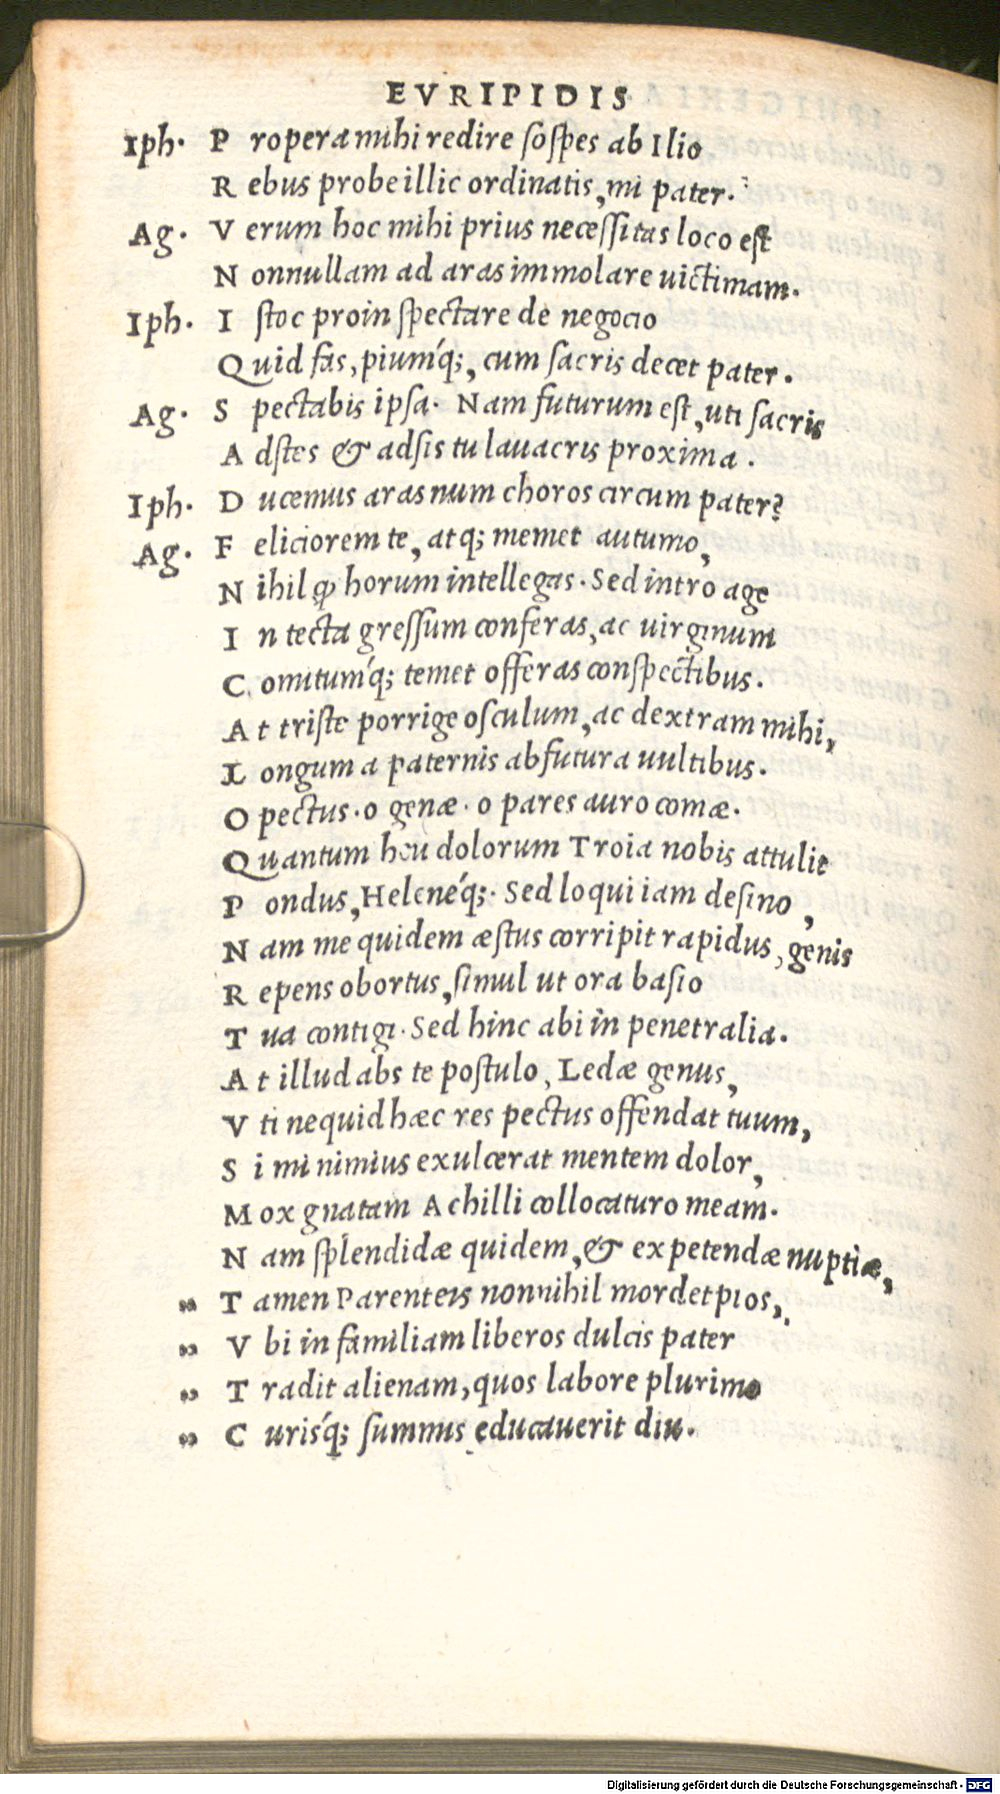 EVRIPIDIS
Iph. P ropera mihi redire sospes ab Ilio
R ebus probe illic ordinatis, mi pater.
Ag. V erum hoc mihi prius necessitas loco est
N onnullam ad aras immolare uictimam.
Iph. I stoc proin spectare de negocio
Quid fas, piumq́;, cum sacris decet pater.
Ag. S pectabis ipsa. Nam futurum est, uti sacris
A dstes & adsis tu lauacris proxima.
Iph. D ucemus aras num choros circum pater?
Ag. F eliciorem te, atq; memet autumo,
N ihil ꝙ horum intellegas. Sed intro age
I n tecta gressum conferas, ac uirginum
C omitumq́; temet offeras conspectibus.
A t triste porrige osculum, ac dextram mihi,
L ongum a paternis abfutura uultibus.
O pectus. o genæ. o pares auro comæ.
Quantum heu dolorum Troia nobis attulit
P ondus, Heleneq́;. Sed loqui iam desino,
N am me quidem æstus corripit rapidus, genis
R epens obortus, simul ut ora basio
T ua contigi. Sed hinc abi in penetralia.
A t illud abs te postulo, Ledæ genus,
V ti nequid hæc res pectus offendat tuum,
S i mi nimius exulcerat mentem dolor,
M ox gnatam Achilli collocaturo meam.
N am splendidæ quidem, & expetendæ nuptiæ,
„ T amen Parenteis nonnihil mordet pios,
„ V bi in familiam liberos dulcis pater
„ T radit alienam, quos labore plurimo
„ C urisq́; summus educauerit diu.
Digitalisierung gefördert durch die Deutsche Forschungsgemeinschaft - DFG